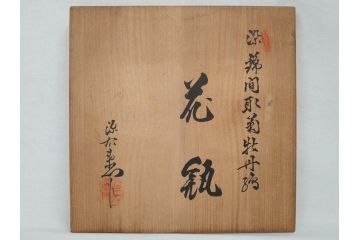 染錦間取菊牡丹絵
花瓶
源右衛門